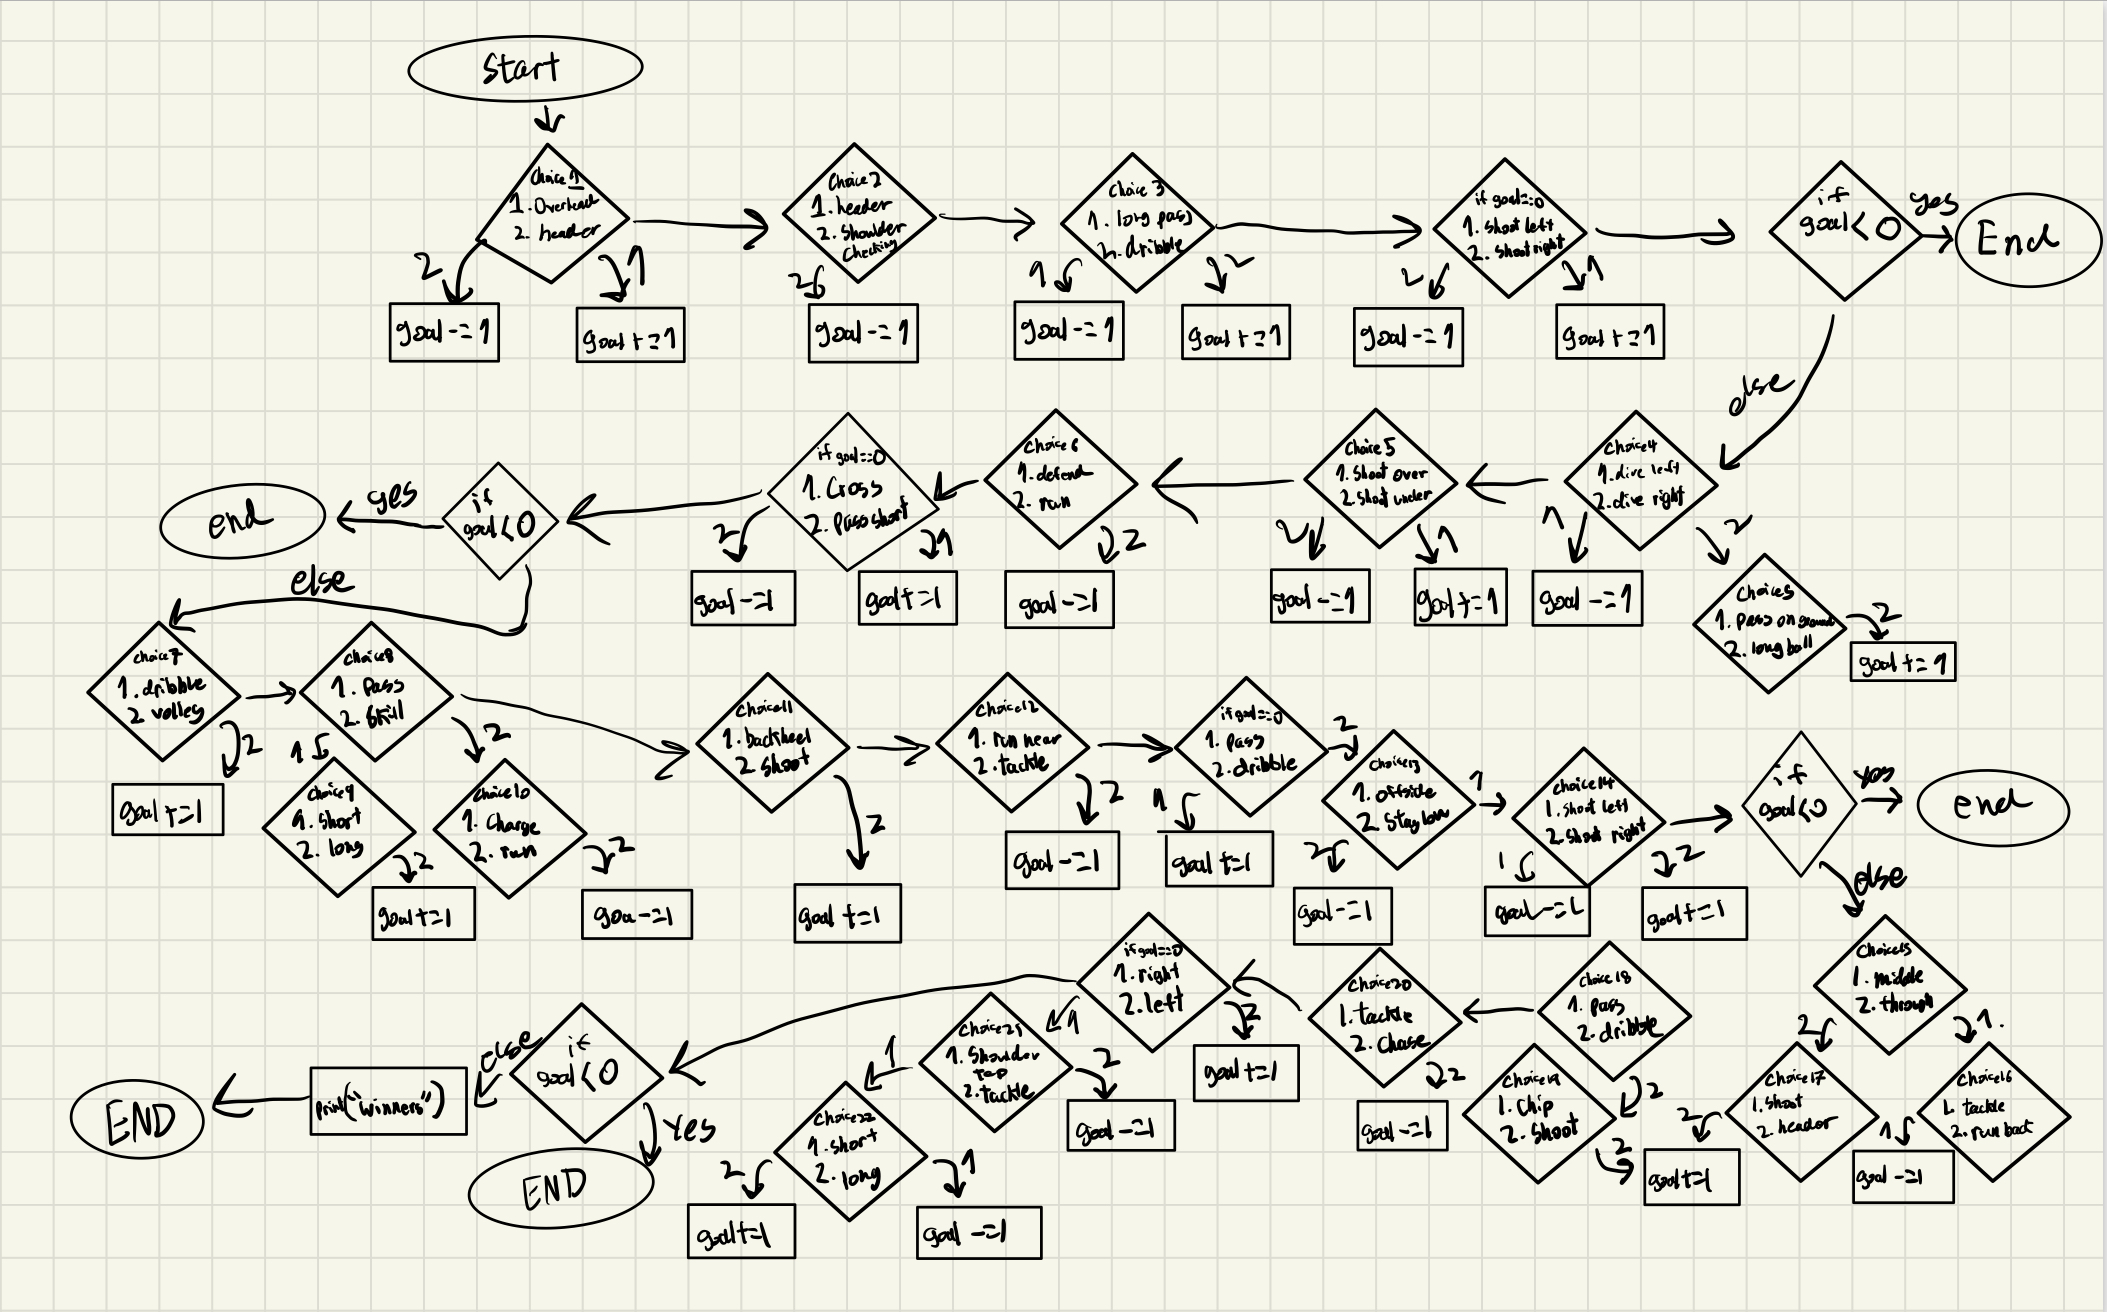 Start
Choice 1
1. Overhead
2. header
2
1
goal -= 1
goal += 1
Choice 2
1. header
2. Shoulder
Checking
2
goal -= 1
Choice 3
1. long pass
2. dribble
1
2
goal -= 1
goal += 1
if goal==0
1. shoot left
2. shoot right
2
1
goal -= 1
goal += 1
if
goal < 0
yes
End
else
Choice 4
1. dive left
2. dive right
1
2
goal -= 1
Choice 5
1. Pass on ground
2. long ball
2
goal += 1
Choice 5
1. Shoot over
2. Shoot under
2
1
goal -= 1
goal += 1
Choice 6
1. defend
2. run
2
goal -= 1
if goal==0
1. Cross
2. Pass short
2
1
goal -= 1
goal += 1
if
goal < 0
yes
end
else
Choice 7
1. dribble
2 volley
2
goal += 1
Choice 8
1. Pass
2. Skill
1
2
Choice 9
1. Short
2. long
2
goal += 1
Choice 10
1. Charge
2. run
2
goa -= 1
Choice 11
1. backheel
2. Shoot
2
goal += 1
Choice 12
1. run near
2. tackle
2
goal -= 1
if goal==0
1. Pass
2. dribble
1
2
goal += 1
Choice 13
1. Offside
2. Stay low
1
2
goal -= 1
Choice 14
1. shoot left
2. Shoot right
1
2
goal -= 1
goal += 1
if
goal < 0
Yes
end
else
Choice 15
1. middle
2. through
2
1.
Choice 17
1. shoot
2. header
2
goal += 1
Choice 16
1. tackle
2. run back
1
goal -= 1
Choice 18
1. Pass
2. dribble
2
Choice 19
1. Chip
2. Shoot
2
Choice 20
1. tackle
2. Chase
2
goal -= 1
if goal==0
1. right
2. left
1
2
goal += 1
Choice 21
1. Shoulder
2. tackle
1
2
goal -= 1
Choice 22
1. short
2. long
2
1
goal += 1
goal -= 1
if
goal < 0
else
Yes
END
print("winners")
END